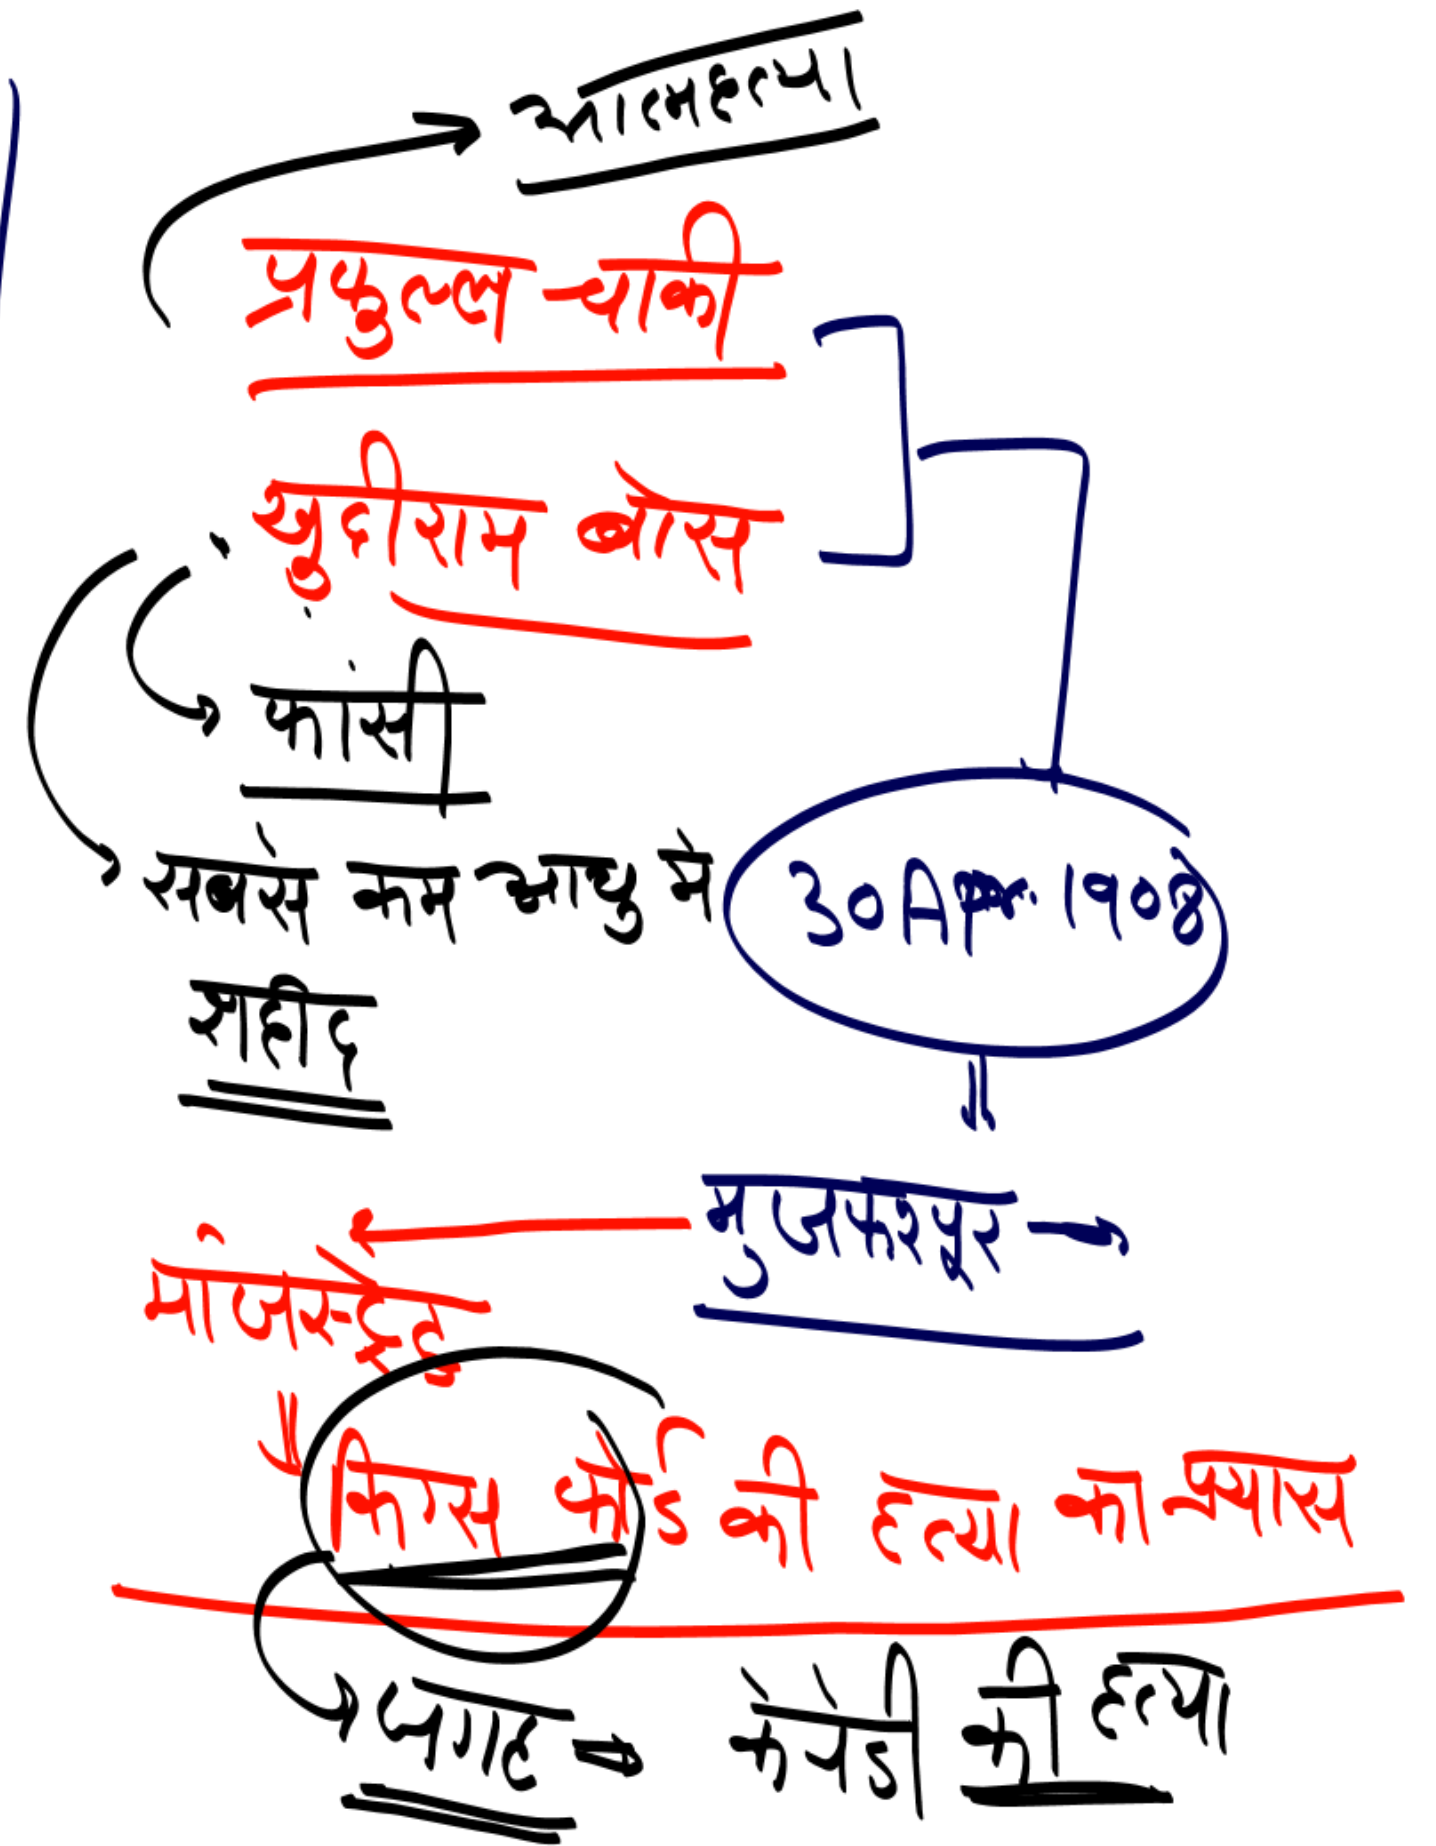 आत्महत्या
प्रफुल्ल चाकी
खुदीराम बोस
फांसी
सबसे कम आयु में
30 Apr. 1908
शहीद
मुजफरपूर
मांजस्ट्रेट
किंग्स फोर्ड की हत्या का प्रयास
जगह
केनेडी की हत्या